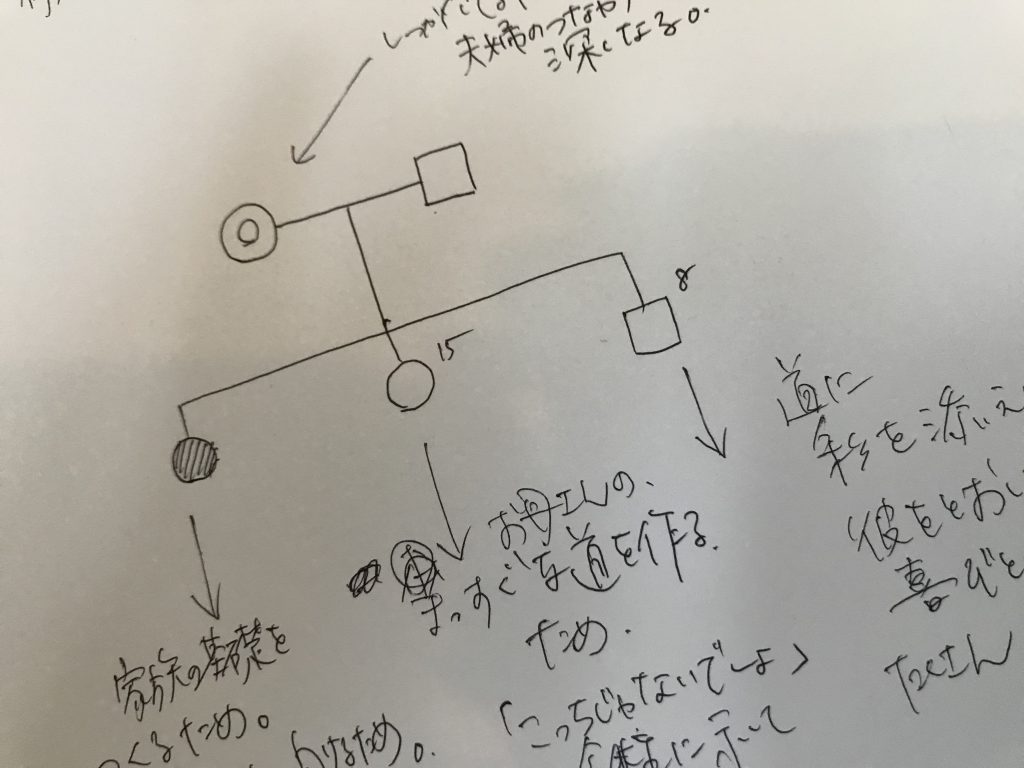 夫婦のつながり
深くなる。
8
15
道に
彩を添え
彼をとおし
喜びと
たくさん
お母さんの、
まっすぐな道を作る
ため.
「こっちじゃないでしょ」
に示して
家族の基礎を
つくるため。
わけるため。